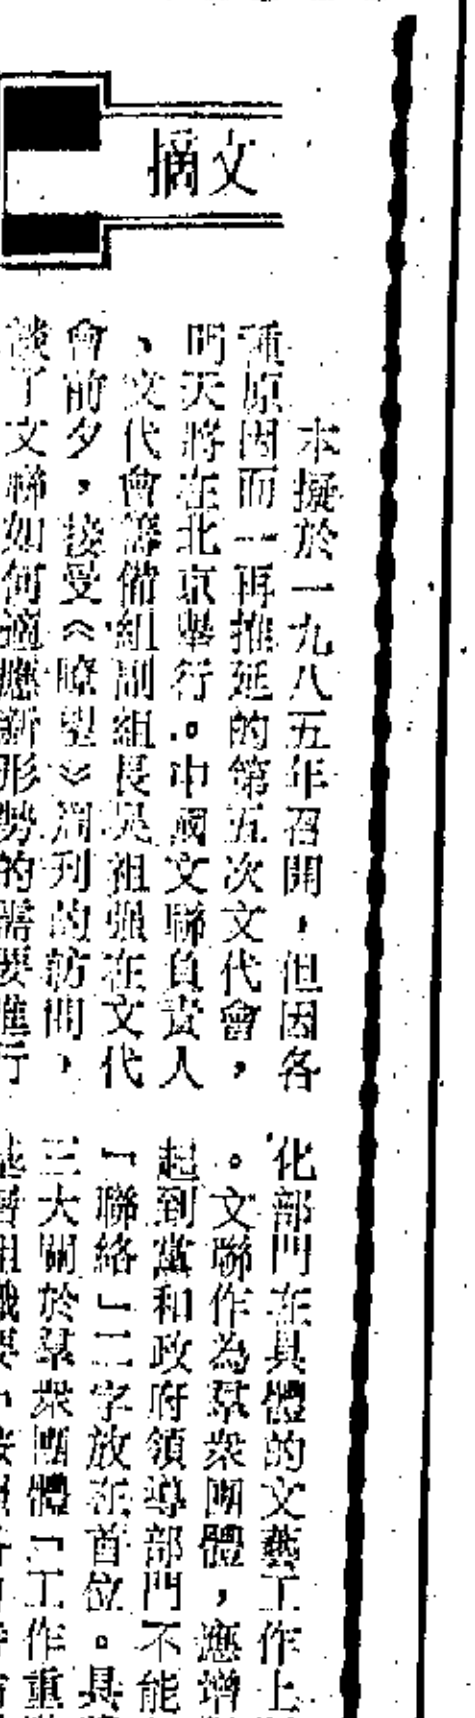 摘文
本擬於一九八五年召開，但因各
種原因而一再推延的第五次文代會，
明天將在北京舉行。中國文聯負責人
、文代會籌備組副組長吳祖強在文代
會前夕，接受《瞭望》周刊的訪問，
談了文聯如何適應新形勢的需要進行
化部門在具體的文藝工作上
。文聯作為羣衆團體，應增
起到黨和政府領導部門不能
「聯絡」二字放在首位。具
三大關於羣衆團體「工作重
基層組織要